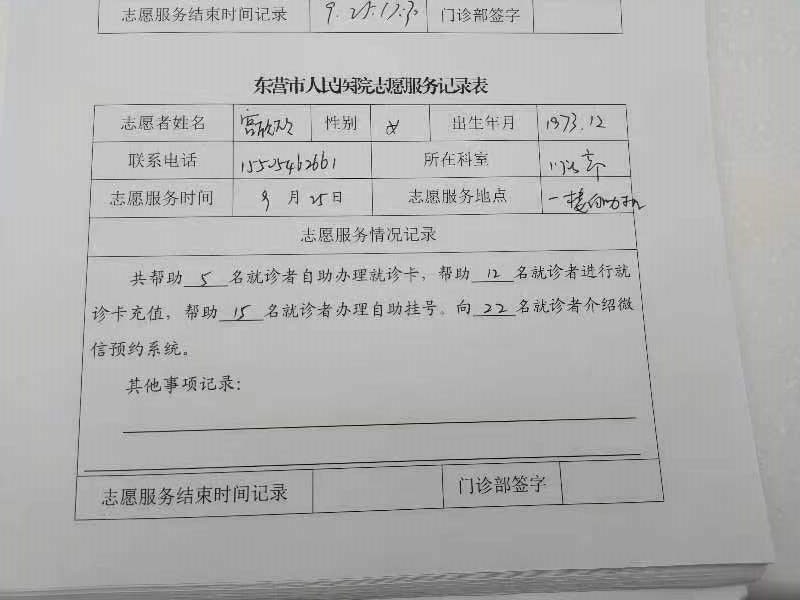 志愿服务结束时间记录 门诊部签字
东营市人民医院志愿服务记录表
志愿者姓名 性别 女 出生年月 1973.12
联系电话 15505462661 所在科室
志愿服务时间 9月25日 志愿服务地点
志愿服务情况记录
共帮助 5 名就诊者自助办理就诊卡，帮助 12 名就诊者进行就
诊卡充值，帮助 15 名就诊者办理自助挂号。向 22 名就诊者介绍微
信预约系统。
其他事项记录：
志愿服务结束时间记录 门诊部签字